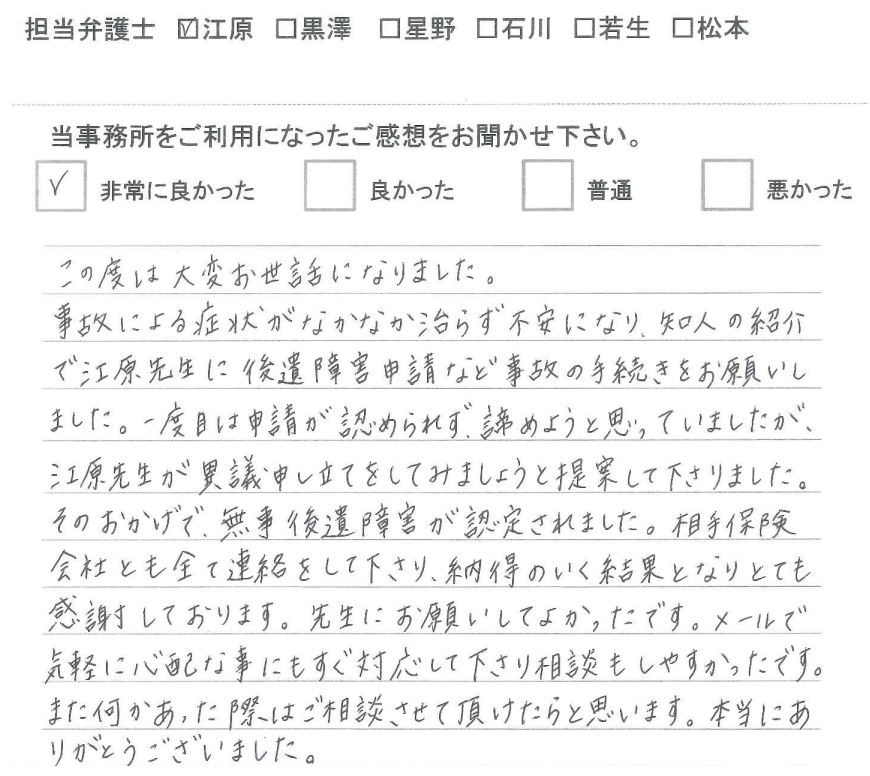 担当弁護士 ☑江原 □黒澤 □星野 □石川 □若生 □松本
当事務所をご利用になったご感想をお聞かせ下さい。
☑ 非常に良かった □ 良かった □ 普通 □ 悪かった
この度は大変お世話になりました。
事故による症状がなかなか治らず不安になり、知人の紹介
で江原先生に後遺障害申請など事故の手続きをお願いし
ました。一度目は申請が認められず、諦めようと思っていましたが、
江原先生が異議申し立てをしてみましょうと提案して下さりました。
そのおかげで、無事後遺障害が認定されました。相手保険
会社とも全て連絡をして下さり、納得のいく結果となりとても
感謝しております。先生にお願いしてよかったです。メールで
気軽に心配な事にもすぐ対応して下さり相談もしやすかったです。
また何かあった際はご相談させて頂けたらと思います。本当にあ
りがとうございました。